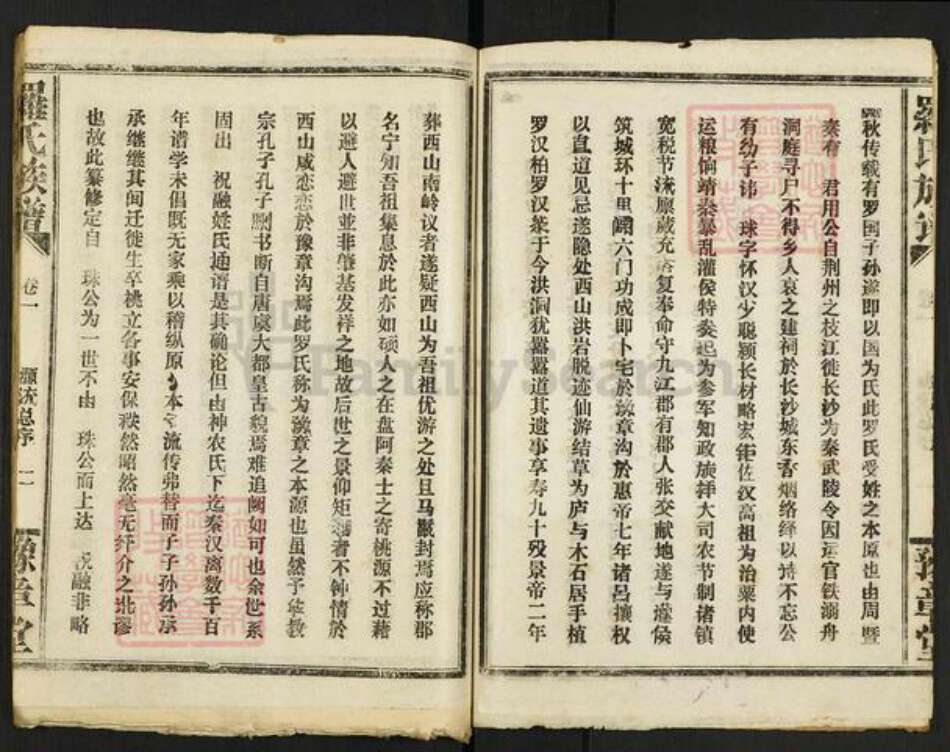 秋传载有罗国子孙遂即以国为氏此罗氏受姓之本原也由周暨
秦有 君用公自荆州之枝江徙长沙为秦武陵令因运官铁溺舟
洞庭寻尸不得乡人哀之建祠於长沙城东香烟络绎以诗不忘公
有幼子讳 珠字怀汉少聪颖长材略宏钜佐汉高祖为治粟内使
运粮饷靖秦暴乱灌侯特委起为参军知政旋拜大司农节制诸镇
宽税节减廪藏充 复奉命守九江郡有郡人张交献地遂与灌侯
筑城环十里闢六门功成即卜宅於豫章沟於惠帝七年诸吕擅权
以直道见忌遂隐处西山洪岩脱迹仙游结草为庐与木石居手植
罗汉柏罗汉菜于今洪洞犹嚣嚣道其遗事享寿九十殁景帝二年
葬西山南岭议者遂疑西山为吾祖优游之处且马鬣封焉应称郡
名宁知吾祖集息於此亦如硕人之在盘阿秦士之寄桃源不过藉
以避人避世並非肇基发祥之地故后世之景仰矩 者不钟情於
西山咸恋恋於豫章沟焉此罗氏称为豫章之本源也虽然予敏教
宗孔子孔子删书断自唐虞大都皇古貌焉难追阙如可也余世系
固出 祝融姓氏通谱是其确论但由神农氏下迄秦汉离数千百
年谱学未倡既无家乘以稽纵原 本 流传弗替而子子孙孙承
承继继其间迁徙生卒桃立各事安保秩然昭然毫无纤介之讹谬
也故此纂修定自 珠公为一世不由 珠公而上达 祝融非略
羅氏族譜
卷一
源流总序
二
豫章堂
羅氏族譜
豫章堂
FamilySearch